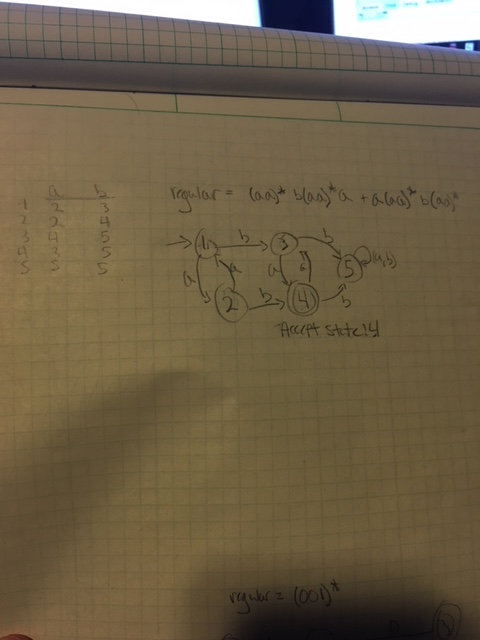 a b
1 2 3
2 2 4
3 4 5
4 3 5
5 5 5
regular = (aa)* b(aa)* a + a(aa)* b(aa)*
1 b 3 b
a a a a 5 (a,b)
2 b 4 b
Accept state: 4
regular = (001)*